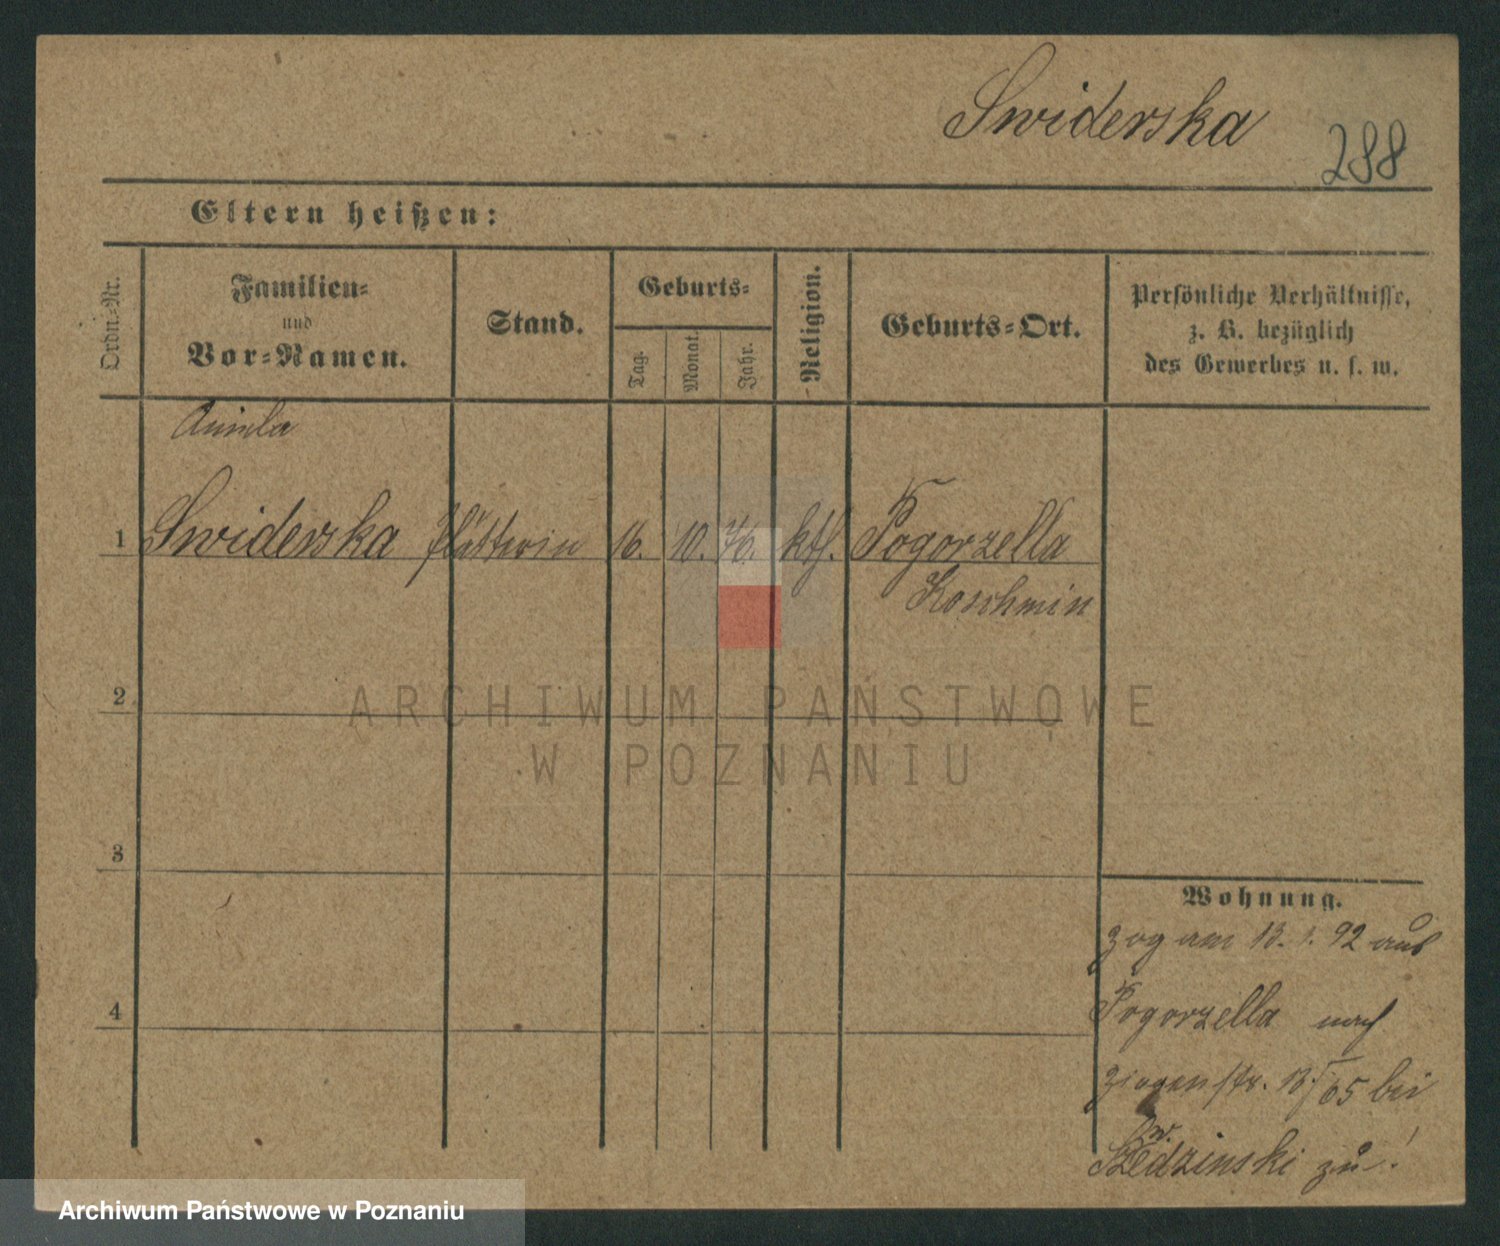 Swiderska
288
Eltern heißen:
Ordn.-Nr.
Familien-
und
Vor-Namen.
Stand.
Geburts-
Tag.
Monat.
Jahr.
Religion.
Geburts-Ort.
Persönliche Verhältnisse,
z. B. bezüglich
des Gewerbes u. s. w.
Aniela
1 Swiderska Plätterin 16. 10. 76. kth. Pogorzella
Koschmin
2
ARCHIWUM PAŃSTWOWE
W POZNANIU
3
4
Wohnung.
zog am 13. 1. 92 aus
Pogorzella nach
Ziegenstr. bei
zu!
Archiwum Państwowe w Poznaniu